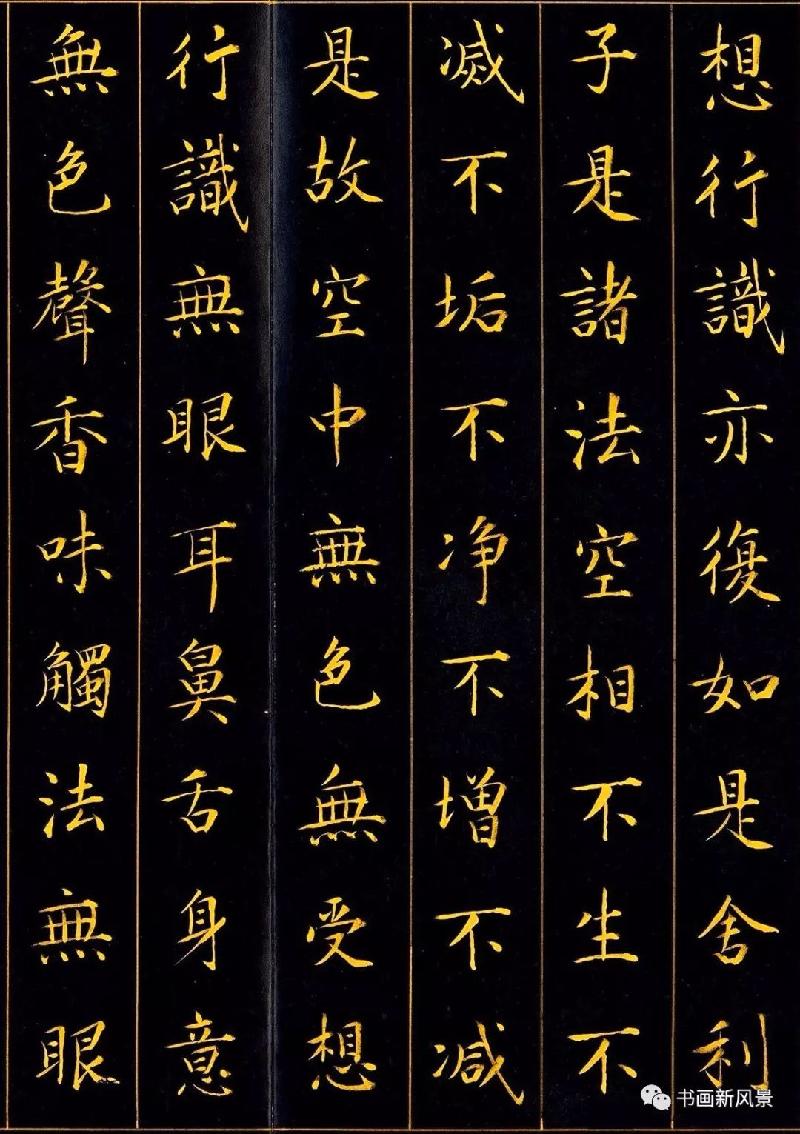 想行識亦復如是舍利
子是諸法空相不生不
滅不垢不净不增不减
是故空中無色無受想
行識無眼耳鼻舌身意
無色聲香味觸法無眼
书画新风景